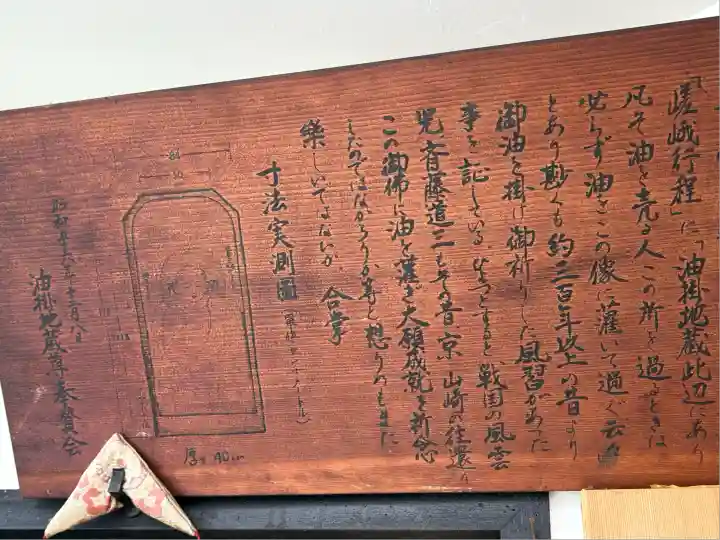 「嵯峨行程」に「油掛地蔵此辺にあり
凡そ油を売る人この所を過るときは
必らず油をこの像に灌いて過ぐ云々」
とあり尠くも約三百年以上の昔より
御油を掛け御祈りした風習があった
事を証している ひょっとすると、戦国の風雲
児斉藤道三もその昔 京、山崎の往還り
この御佛に油を灌ぎ大願成就を祈念
したのではなかろうか等と想うのもまた
楽しいではないか 合掌
寸法実測圖
厚サ 40cm
油掛地蔵尊奉賛会